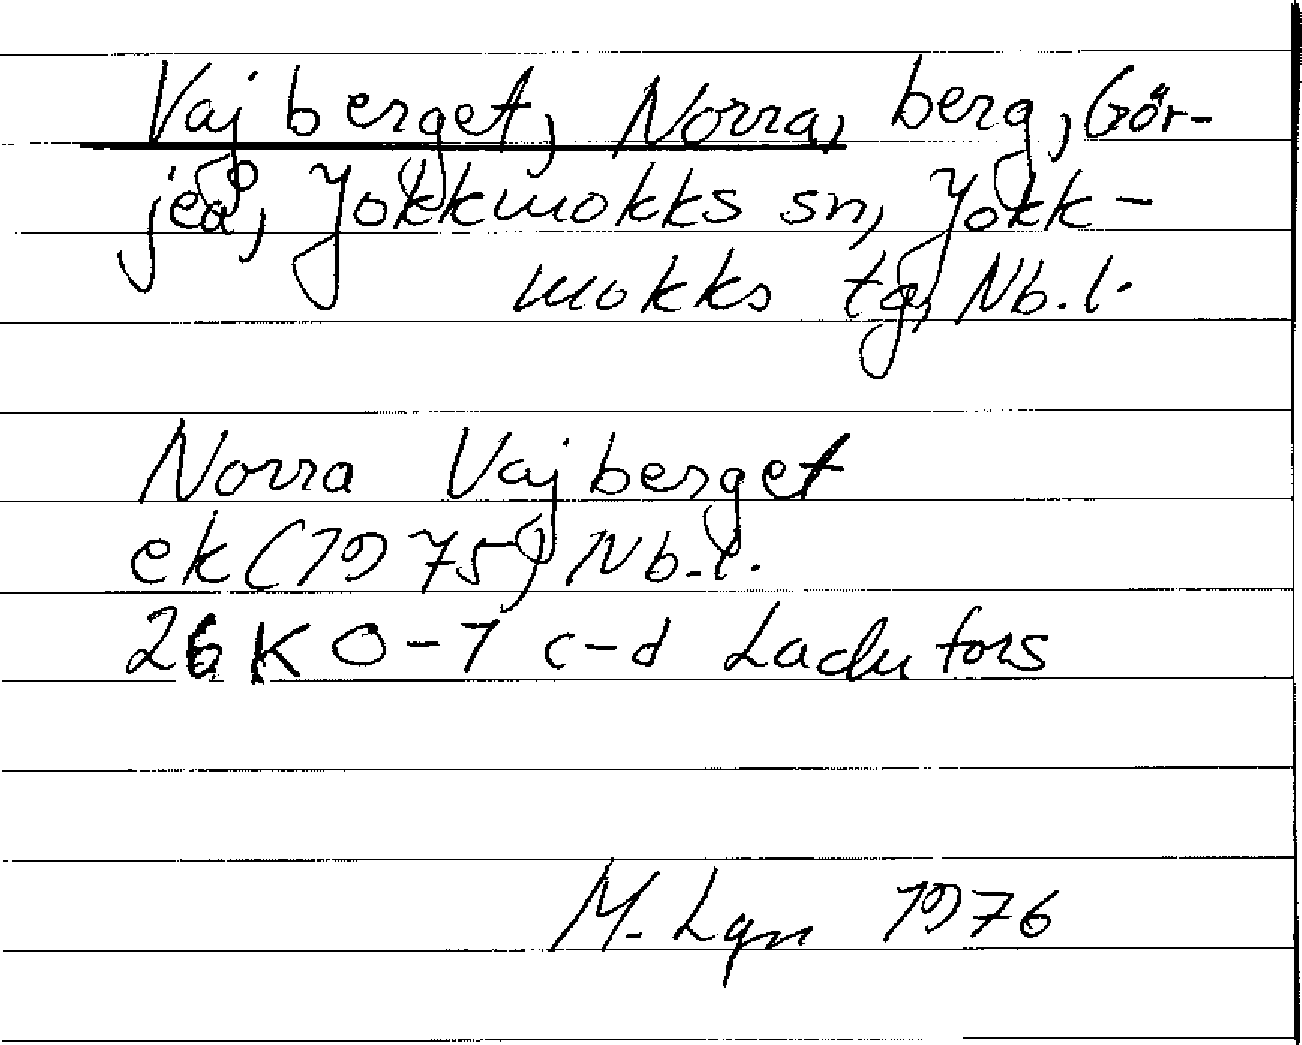 Vajberget, Norra, berg, Gör-
jeå, Jokkmokks sn, Jokk-
mokks tg, Nb.l.
Norra Vajberget
ek (1975) Nb.l.
26K 0-1 c-d Ladufors
M. Lgn 1976